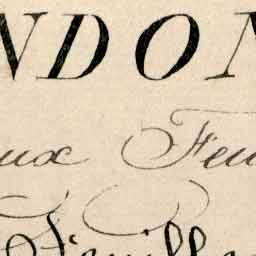 NDON
aux Feu
Feuille